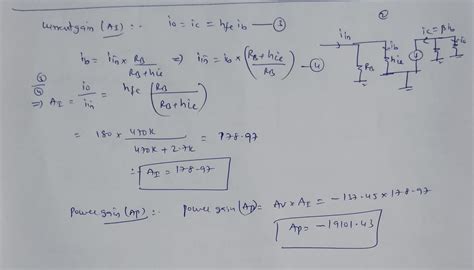 Current gain (AI) :- io = ic = hfe ib — ③
ib = iin × RB / (RB + hie) ⇒ iin = ib × ((RB + hie) / RB) — ④
③/④
⇒ AI = io / iin = hfe (RB / (RB + hie))
= 180 × 470K / (470K + 2.7K) = 178.97
∴ AI = 178.97
Power gain (Ap) :- Power gain (Ap) = AV × AI = -137.45 × 178.97
Ap = -19101.43
②
iin
RB
ib
hie
ic = βib